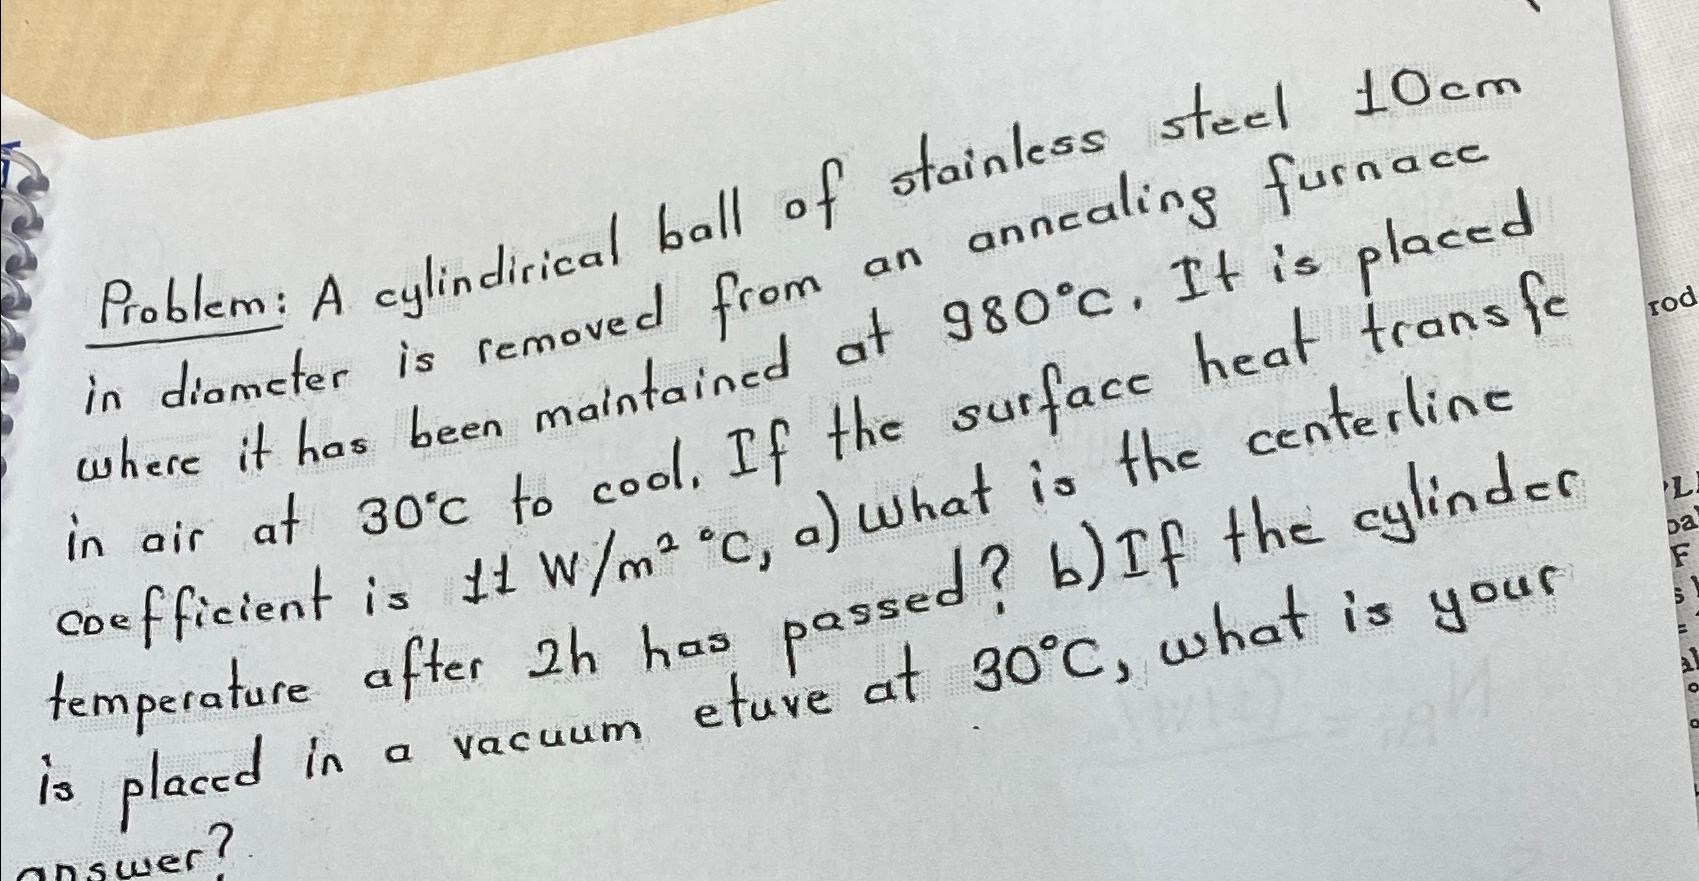 Problem: A cylindirical ball of stainless steel 10cm
in diameter is removed from an annealing furnace
where it has been maintained at 980°C. It is placed
in air at 30°C to cool. If the surface heat transfe
coefficient is 11 W/m² °C, a) What is the centerline
temperature after 2h has passed? b) If the cylinder
is placed in a vacuum etuve at 30°C, what is your
answer?
rod